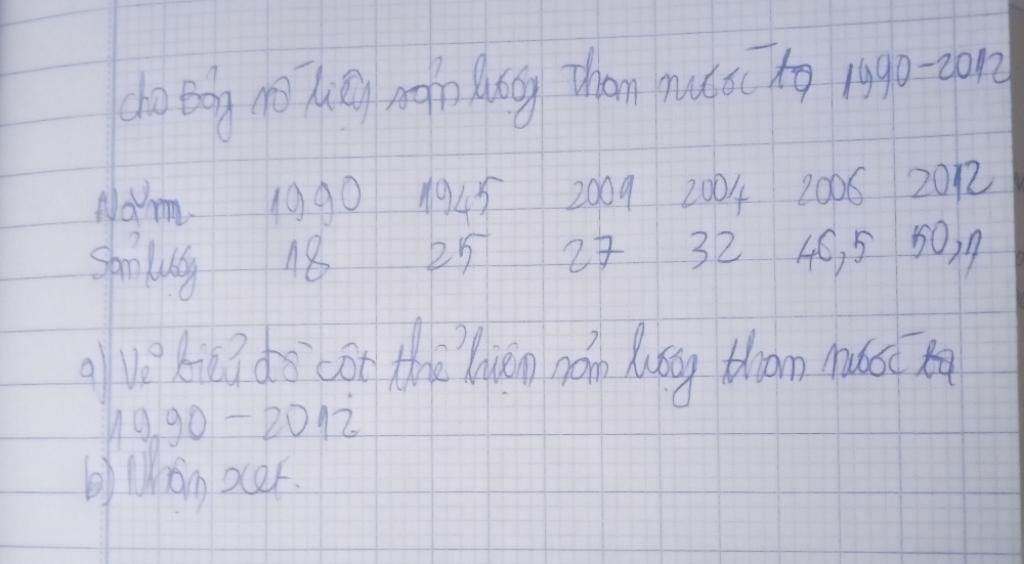 cho bảng số liệu sản lượng than nước ta 1990-2012
Năm 1990 1945 2001 2004 2006 2012
Sản lượng 18 25 27 32 46,5 50,1
a) Vẽ biểu đồ cột thể hiện sản lượng than nước ta
1990 - 2012
b) Nhận xét.